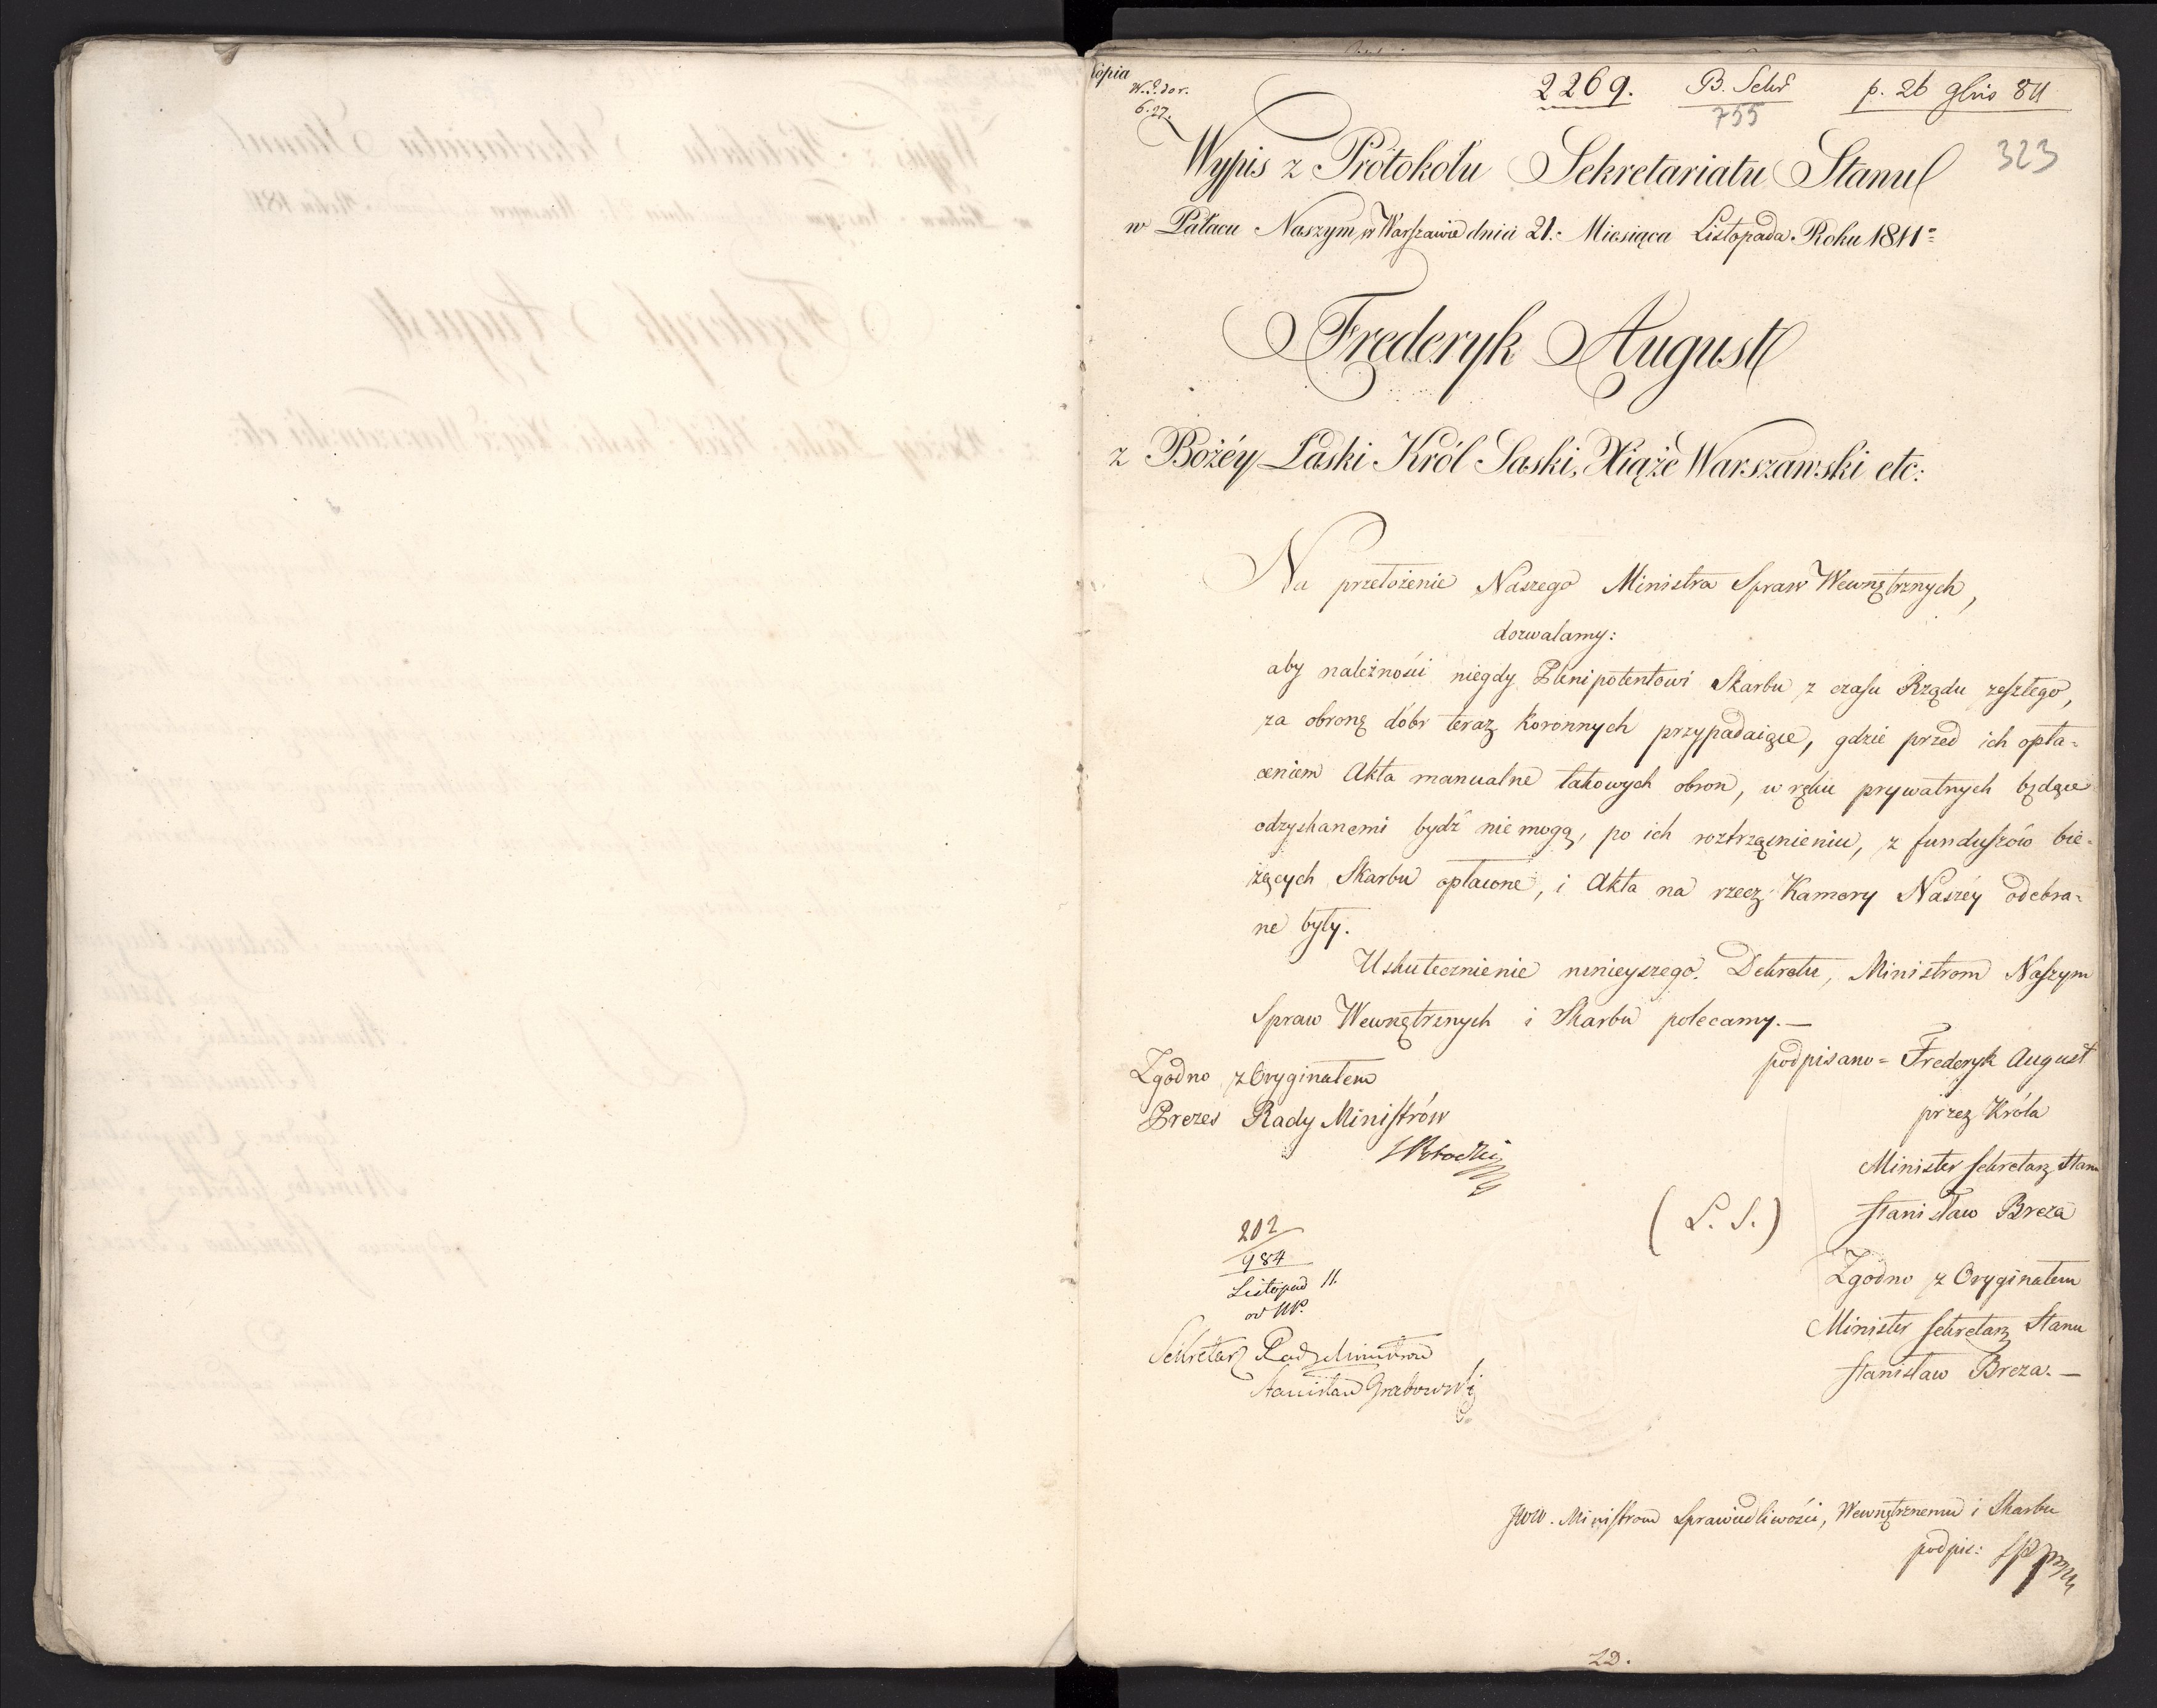 Kopia
2269. B. Sekr p. 26 9bris 811
6.27.
755
323
Wypis z Protokołu Sekretariatu Stanu
w Pałacu Naszym w Warszawie dnia 21. Miesiąca Listopada Roku 1811
Frederyk August
z Bożéy Łaski Król Saski, Xiąże Warszawski etc:
Na przełożenie Naszego Ministra Spraw Wewnętrznych,
dozwalamy:
aby należności niegdy Plenipotentowi Skarbu z czasu Rządu zeszłego,
za obronę dóbr teraz Koronnych przypadaiące, gdzie przed ich opła-
ceniem Akta manualne takowych obron, w ręku prywatnych będące
odzyskanemi bydź nie mogą, po ich roztrząśnieniu, z funduszów bie-
żących Skarbu opłacone, i Akta na rzecz Kamery Naszéy odebra-
ne były.
Uskutecznienie ninieyszego Dekretu, Ministrom Naszym
Spraw Wewnętrznych i Skarbu polecamy.—
podpisano = Frederyk August
Zgodno z Oryginałem
przez Króla
Prezes Rady Ministrów
Minister Sekretarz Stanu
(L. S.) Stanisław Breza
202
984
Listopad 11.
Zgodno z Oryginałem
Minister Sekretarz Stanu
Sekretarz Rady Ministrów
Stanisław Breza.—
Stanisław Grabowski
JWW. Ministrom Sprawiedliwości, Wewnętrznemu i Skarbu
podpis: